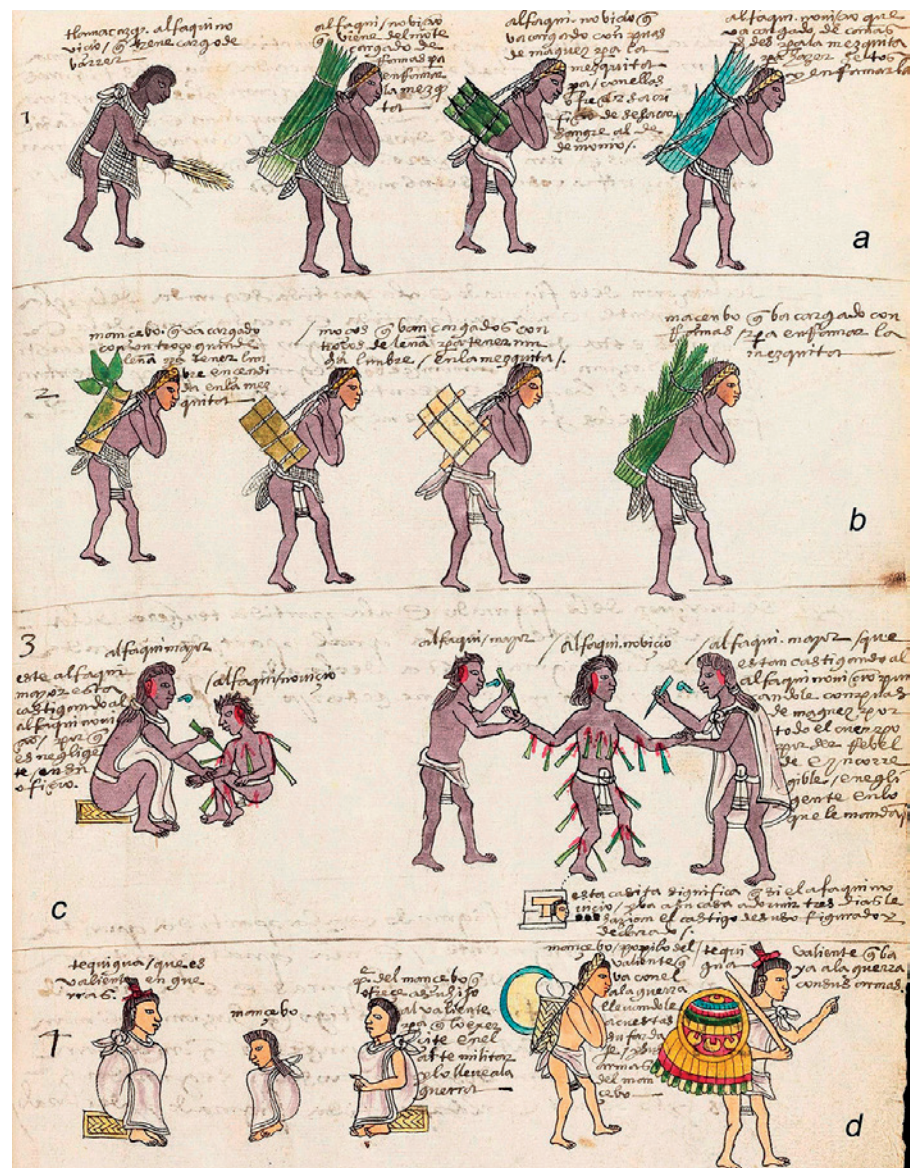 tlamacazq. alfaqui no
vicio / q tiene cargo de
barrer
alfaqui / novicio
q viene del monte
cargado de
Ramas pa
enRamar
la mezq
ta
alfaqui. novicio q
va cargado con puas
de maguez pa la
mezquita
pa / con ellos
ofrecer sacri
ficio de sacar
sangre al de
demonio /.
alfaqui. novicio que
va cargado de cañas
v des pa la mezquita
1
4
a
mancebo. q va cargado
con un troço grande
leña pa tener lum
bre encendi
da en la mez
quita
moços q van cargados con
troços de leña pa tener
lumbre / en la mezquita /.
mançebo q va cargado con
Ramas / pa enRamar la
mezquita
2
b
3
alfaqui mayor
este alfaqui
mayor esta
castigando al
alfaqui novi
çio / por q
es negligen
te / en su
ofiçio.
/ alfaqui / noviçio
alfaqui / mayor
/ Alfaqui. noviçio
/ alfaqui. mayor / que
estan castigando al
alfaqui noviçio pun
çandole con puas
de maguez por
todo el cuerpo
por ser Rebel
de E yncorre
gible / E negli
gente en lo
que le mandan
esta casita significa q si el alfaqui no
viçio / yva a su casa a dormir tres dias le
hazian el castigo de suso figurado y
declarado /.
c
4
tequigua / que es
valiente en gue
rras
mançebo
p. del mancebo q
ofreçe a su hijo
al valiente
pa q lo exer
çite en el
arte militar
y lo lleve a la
guerra
mançebo / popilo del
valiente q
va con el
a la guerra
llevandole
a cuestas
su farda
je / y sus
armas
del man
çebo
/ tequi
gua
valiente q va
ya a la guerra
con sus armas.
d